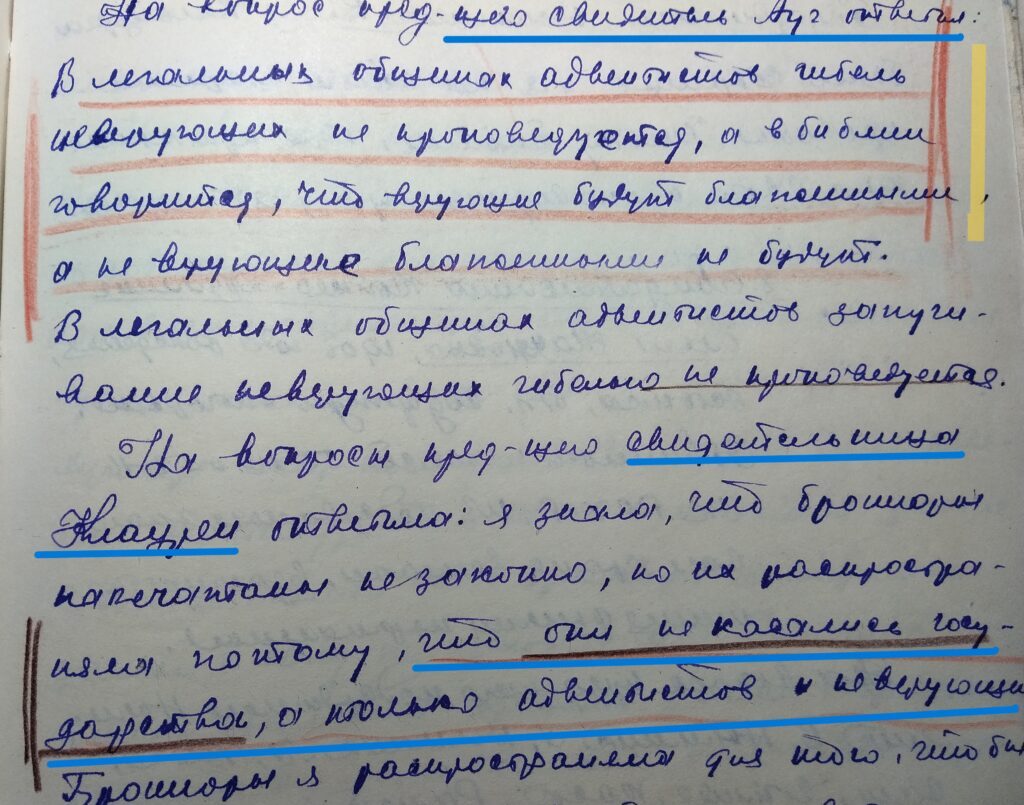 На вопрос пред-щего свидетель Луг ответил:
В легальных общинах адвентистов гибель
неверующих не проповедуются, а в библии
говорится, что верующие будут блаженными,
а не верующие блаженными не будут.
В легальных общинах адвентистов запуги-
вание неверующих гибелью не проповедуется.
На вопросы пред-щего свидетельница
ответила: я знала, что брошюры
напечатаны незаконно, но их распростра-
няла поэтому, что они не касались госу-
дарства, а только адвентистов и неверующих
Брошюры я распространяла для того, чтобы